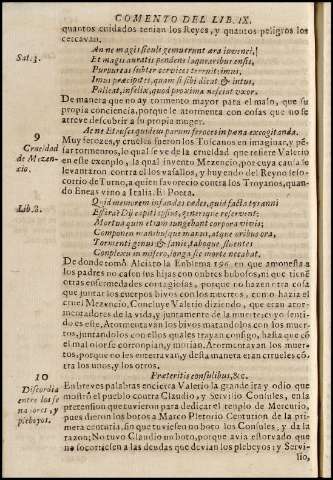 COMENTO DEL LIB. IX.
quantos cuidados tenian los Reyes, y quantos peligros los
cercavan.
Sat. 3.
An ne magis siculi gemuerunt æra iuvenci,
Et magis auratis pendens laquearibus ensis,
Purpureas subter cervices terruit; imus,
Imus præcipites, quam si sibi dicat & intus,
Palleat, infelix, quod proxima nesciat uxor.
De manera que no ay tormento mayor para el malo, que su
propia conciencia, porque le atormenta con cosas que no se
atreve descubrir a su propia muger.
9
Crueldad
de Mezen-
cio.
Ac ne Etrusci quidem parum feroces in pœna excogitanda.
Muy feroces, y crueles fueron los Tuscanos en imaginar, y pesar
tormentos, lo qual se ve de la crueldad que refiere Valerio
en este exemplo, la qual inventó Mezencio, por cuya causa se
levantaron contra el los vasallos, y huyendo del Reyno
corrio de Turno, a quien favorecio contra los Troyanos, quando
Eneas vino a Italia. El Poeta.
Lib. 8.
Quid memorem infandas cædes, quid facta tyranni
Effera? Dij capiti ipsius, generique reservent:
Mortua quin etiam iungebat corpora vivis;
Componens manibusque manus, atque oribus ora,
Tormenti genus & sanie, taboque fluentes
Complexu in misero, longa sic morte necabat.
De donde tomó Alciato la Emblema 196. en que amonesta a
los padres no casen sus hijas con onbres bubosos, ni que tienen
otras enfermedades contagiosas, porque no hazen otra cosa
que juntar los cuerpos bivos con los muertos, como hazia el
cruel Mezencio. Concluye Valerio diziendo, que eran atormentadores
de la vida, y juntamente de la muerte; cuyo sentido
es este, Atormentavan los bivos matandolos con los muertos,
juntandolos con ellos quales trayan consigo, hasta que có
el mal olor se corronpian, y morian. Atormentavan los muertos,
porque no los enterravan, y desta manera eran crueles cótra
los unos, y los otros.
10
Discordia
entre los se
nadores, y
plebeyos.
Præteritis consulibus, &c.
En breves palabras encierra Valerio la grande ira y odio que
mostró el pueblo contra Claudio, y Servilio Consules, en la
pretension que tuvieron para dedicar el templo de Mercurio,
pues dieron los botos a Marco Pletorio Centurion de la primera
centuria, sin que tuviesen no boto los Consules, y da la
razon; No tuvo Claudio un boto, porque avia estorvado que
no socorriesen a las deudas que devian los plebeyos; y Servilio,